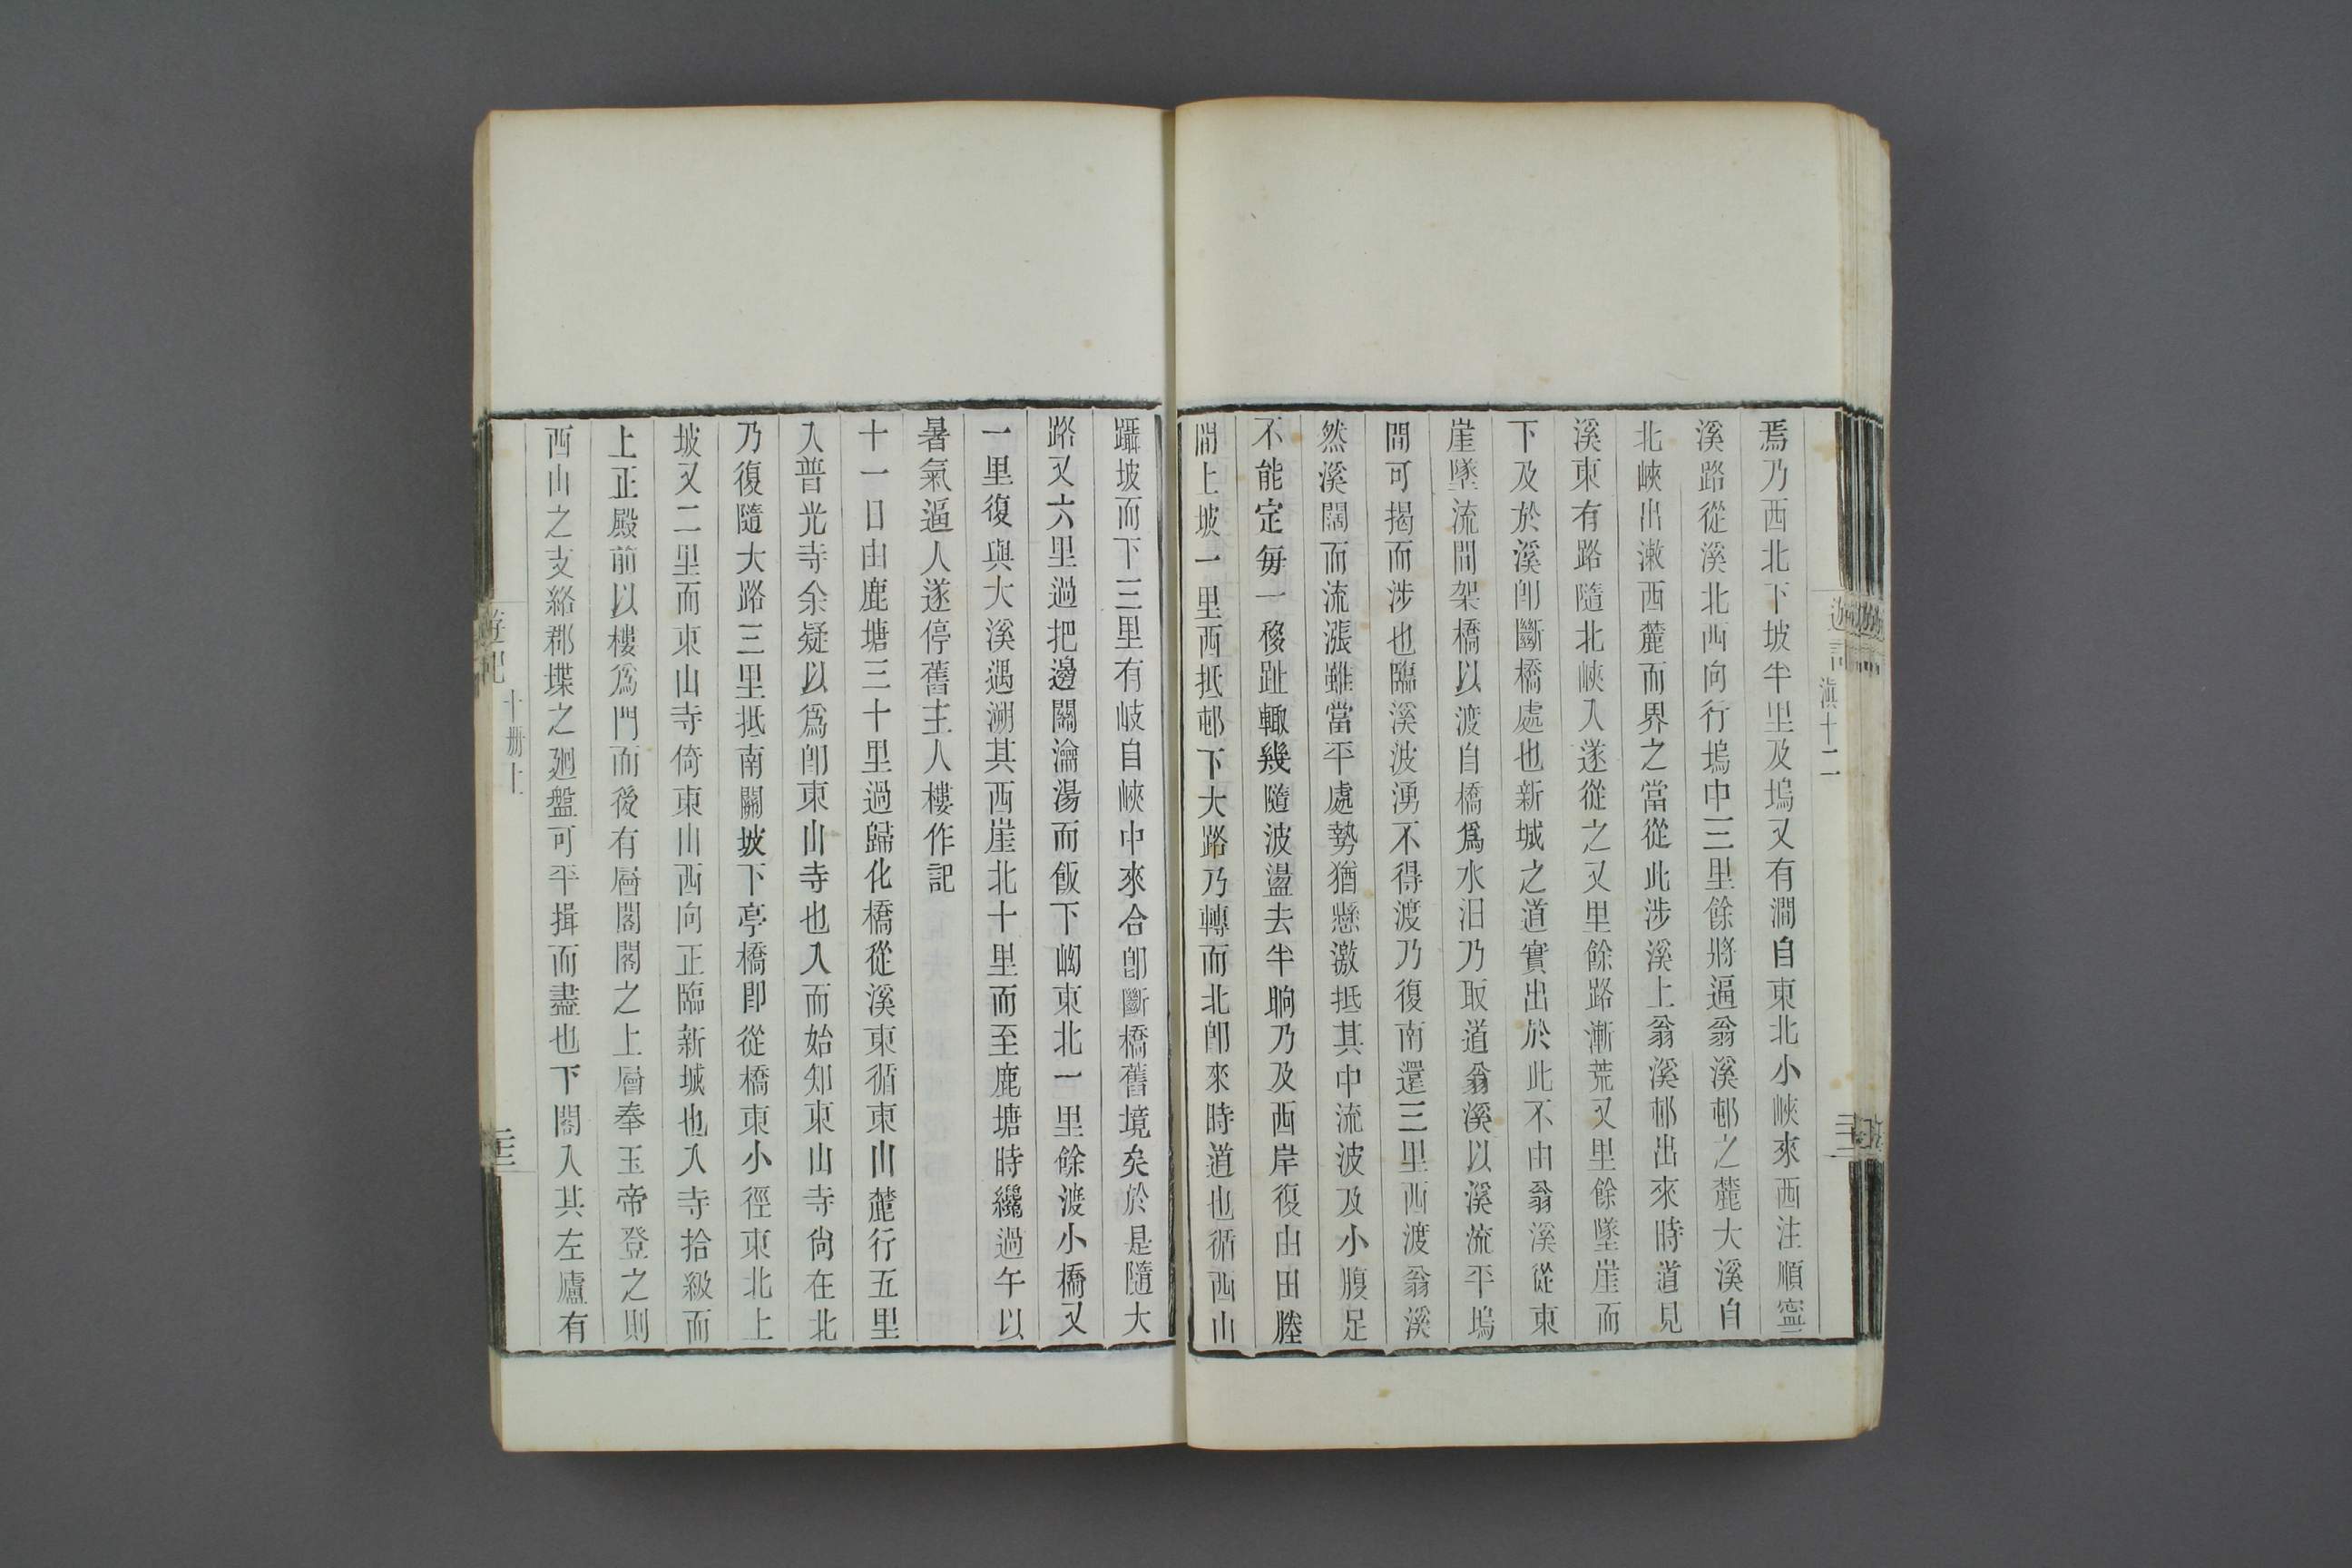 遊記
滇十二
焉乃西北下坡半里及塢又有澗自東北小峽來西注順寧
溪路從溪北西向行塢中三里餘將逼翁溪邨之麓大溪自
北峽出漱西麓而界之當從此涉溪上翁溪邨出來時道見
溪東有路隨北峽入遂從之又里餘路漸荒又里餘墜崖而
下及於溪卽斷橋處也新城之道實出於此不由翁溪從東
崖墜流間架橋以渡自橋爲水汨乃取道翁溪以溪流平塢
間可揭而涉也臨溪波湧不得渡乃復南還三里西渡翁溪
然溪闊而流漲雖當平處勢猶懸激抵其中流波及小腹足
不能定每一移趾輙幾隨波波盪去半晌乃及西岸復由田塍
間上坡一里西抵邨下大路乃轉而北卽來時道也循西山
躡坡而下三里有岐自峽中來合卽斷橋舊境矣於是隨大
路又六里過把邊關瀹湯而飯下峽東北一里餘渡小橋又
一里復與大溪遇溯其西崖北十里而至鹿塘時纔過午以
暑氣逼人遂停舊主人樓作記
十一日由鹿塘三十里過歸化橋從溪東循東山麓行五里
入普光寺余疑以爲卽東山寺也入而始知東山寺尙在北
乃復隨大路三里抵南關坡下亭橋卽從橋東小徑東北上
坡又二里而東山寺倚東山西向正臨新城也入寺拾級而
上正殿前以樓爲門而後有層閣閣之上層奉玉帝登之則
西山之支絡郡堞之廻盤可平揖而盡也下閣入其左廬有
遊記
十册上